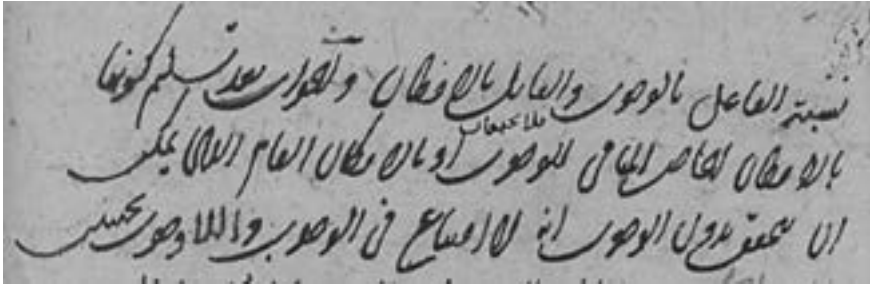 نسبة الفاعل بالوجوب والقابل بالامكان والجواب بعد تسلیم كونها
بالامكان الخاص المنافی للوجوب فلا يجتمعان او بالامكان العام الذی يمكن
ان يتحقق بدون الوجوب انه لا امتناع فی الوجوب واللاوجوب بحيثيتين